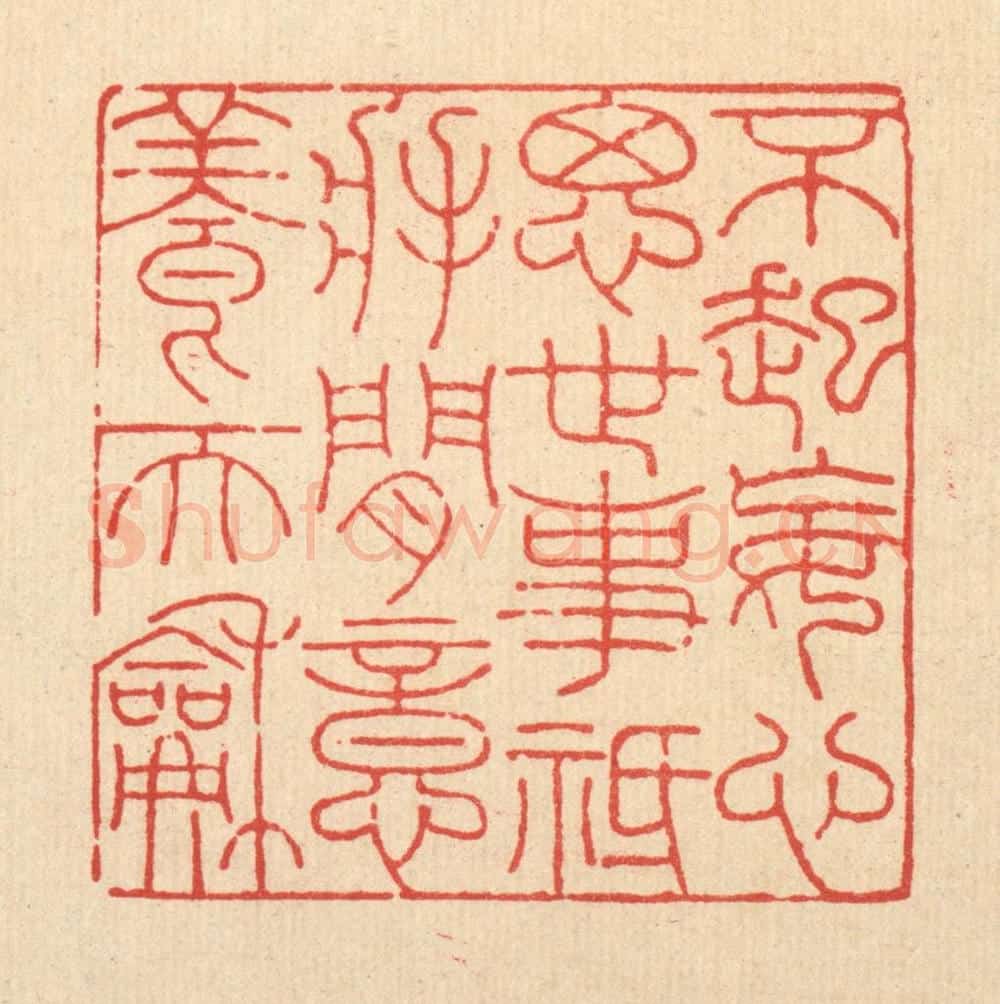 不起妄心
思世事祇
將閒意
養天龢
Shufawang.CN